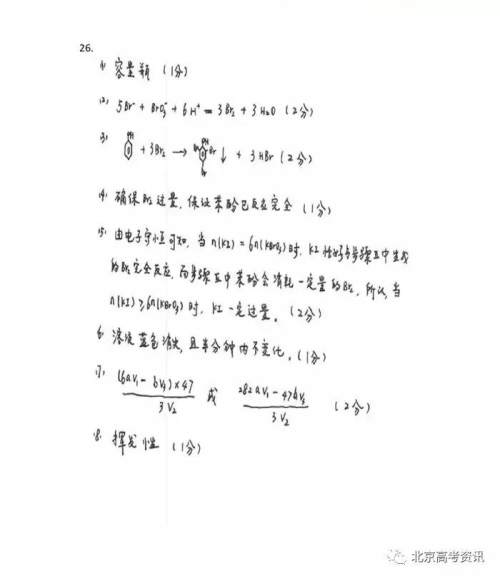 26.
(1) 容量瓶 (1分)
(2) 5Br⁻ + BrO₃⁻ + 6H⁺ = 3Br₂ + 3H₂O (2分)
(3) OH + 3Br₂ → OH Br Br ↓ + 3HBr (2分) Br
(4) 确保Br₂过量，保证苯酚已反应完全 (1分)
(5) 由电子守恒可知，当 n(KI) = 6n(KBrO₃)时，KI恰好与步骤Ⅱ中生成
的Br₂完全反应，而步骤Ⅱ中苯酚会消耗一定量的Br₂，所以，当
n(KI) ≥ 6n(KBrO₃)时，KI一定过量。(2分)
(6) 溶液蓝色消失，且半分钟内不变化。(1分)
(7) (6av₁ - bv₃)×47 / 3V₂ 或 282av₁ - 47bv₃ / 3V₂ (2分)
(8) 挥发性 (1分)
北京高考资讯